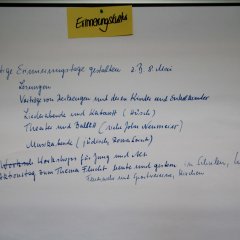 Erinnerungskultur
tige Erinnerungstage gestalten z.B. 8. Mai
Lesungen
Vorträge von Zeitzeugen und deren Kinder und Enkelkinder
Liederabende und Kabarett (Hüsch)
Theater und Ballett (siehe John Neumeier)
Musikabende (jüdische Komponist)
Workshops für Jung und Alt
Aktionstag zum Thema Flucht heute und gestern in Schulen,
und Sportvereine, Kirchen